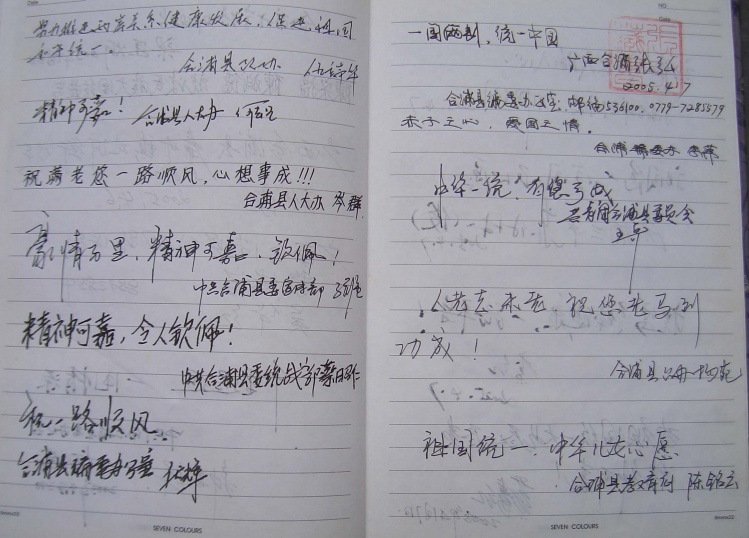 Date
努力推进两岸关系健康发展，促进祖国
和平统一。
合浦县政协
精神可嘉！ 合浦县人大办
祝萧老您一路顺风，心想事成!!!
合浦县人大办 岑群
豪情万里，精神可嘉，钦佩！
中共合浦县委宣传部
精神可嘉，令人钦佩！
中共合浦县委统战部
祝一路顺风
合浦县编委办
SEVEN COLOURS
NO.
Date
一国两制，统一中国
广西合浦张弘
2005.4.7
合浦县编委办公室：邮编536100，0779-7285579
赤子之心，爱国之情。
合浦编委办
中华一统，有您弓成
共青团合浦县委员会
人老志未老，祝您老马到
功成！
合浦县
祖国统一，中华儿女心愿
合浦县教育局 陈铭
SEVEN COLOURS